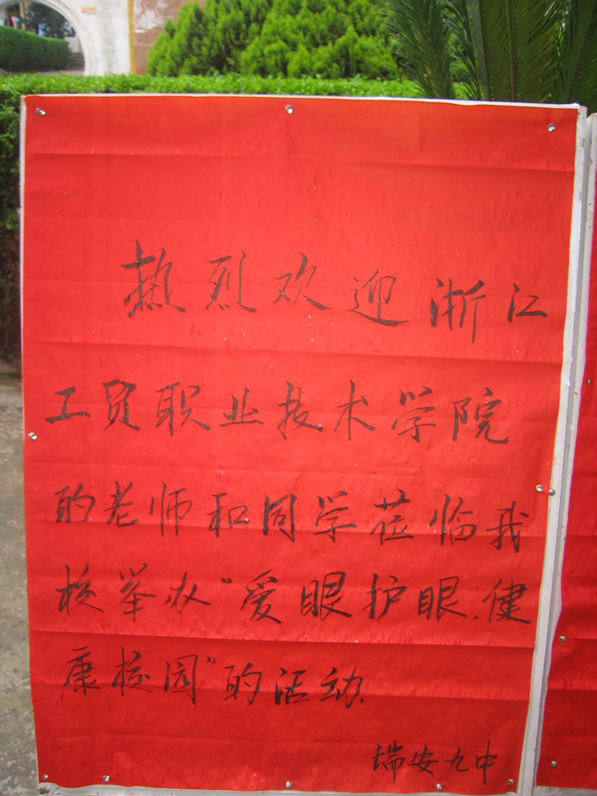 热烈欢迎浙江
工贸职业技术学院
的老师和同学莅临我
校举办“爱眼护眼,健
康校园”的活动.
瑞安九中